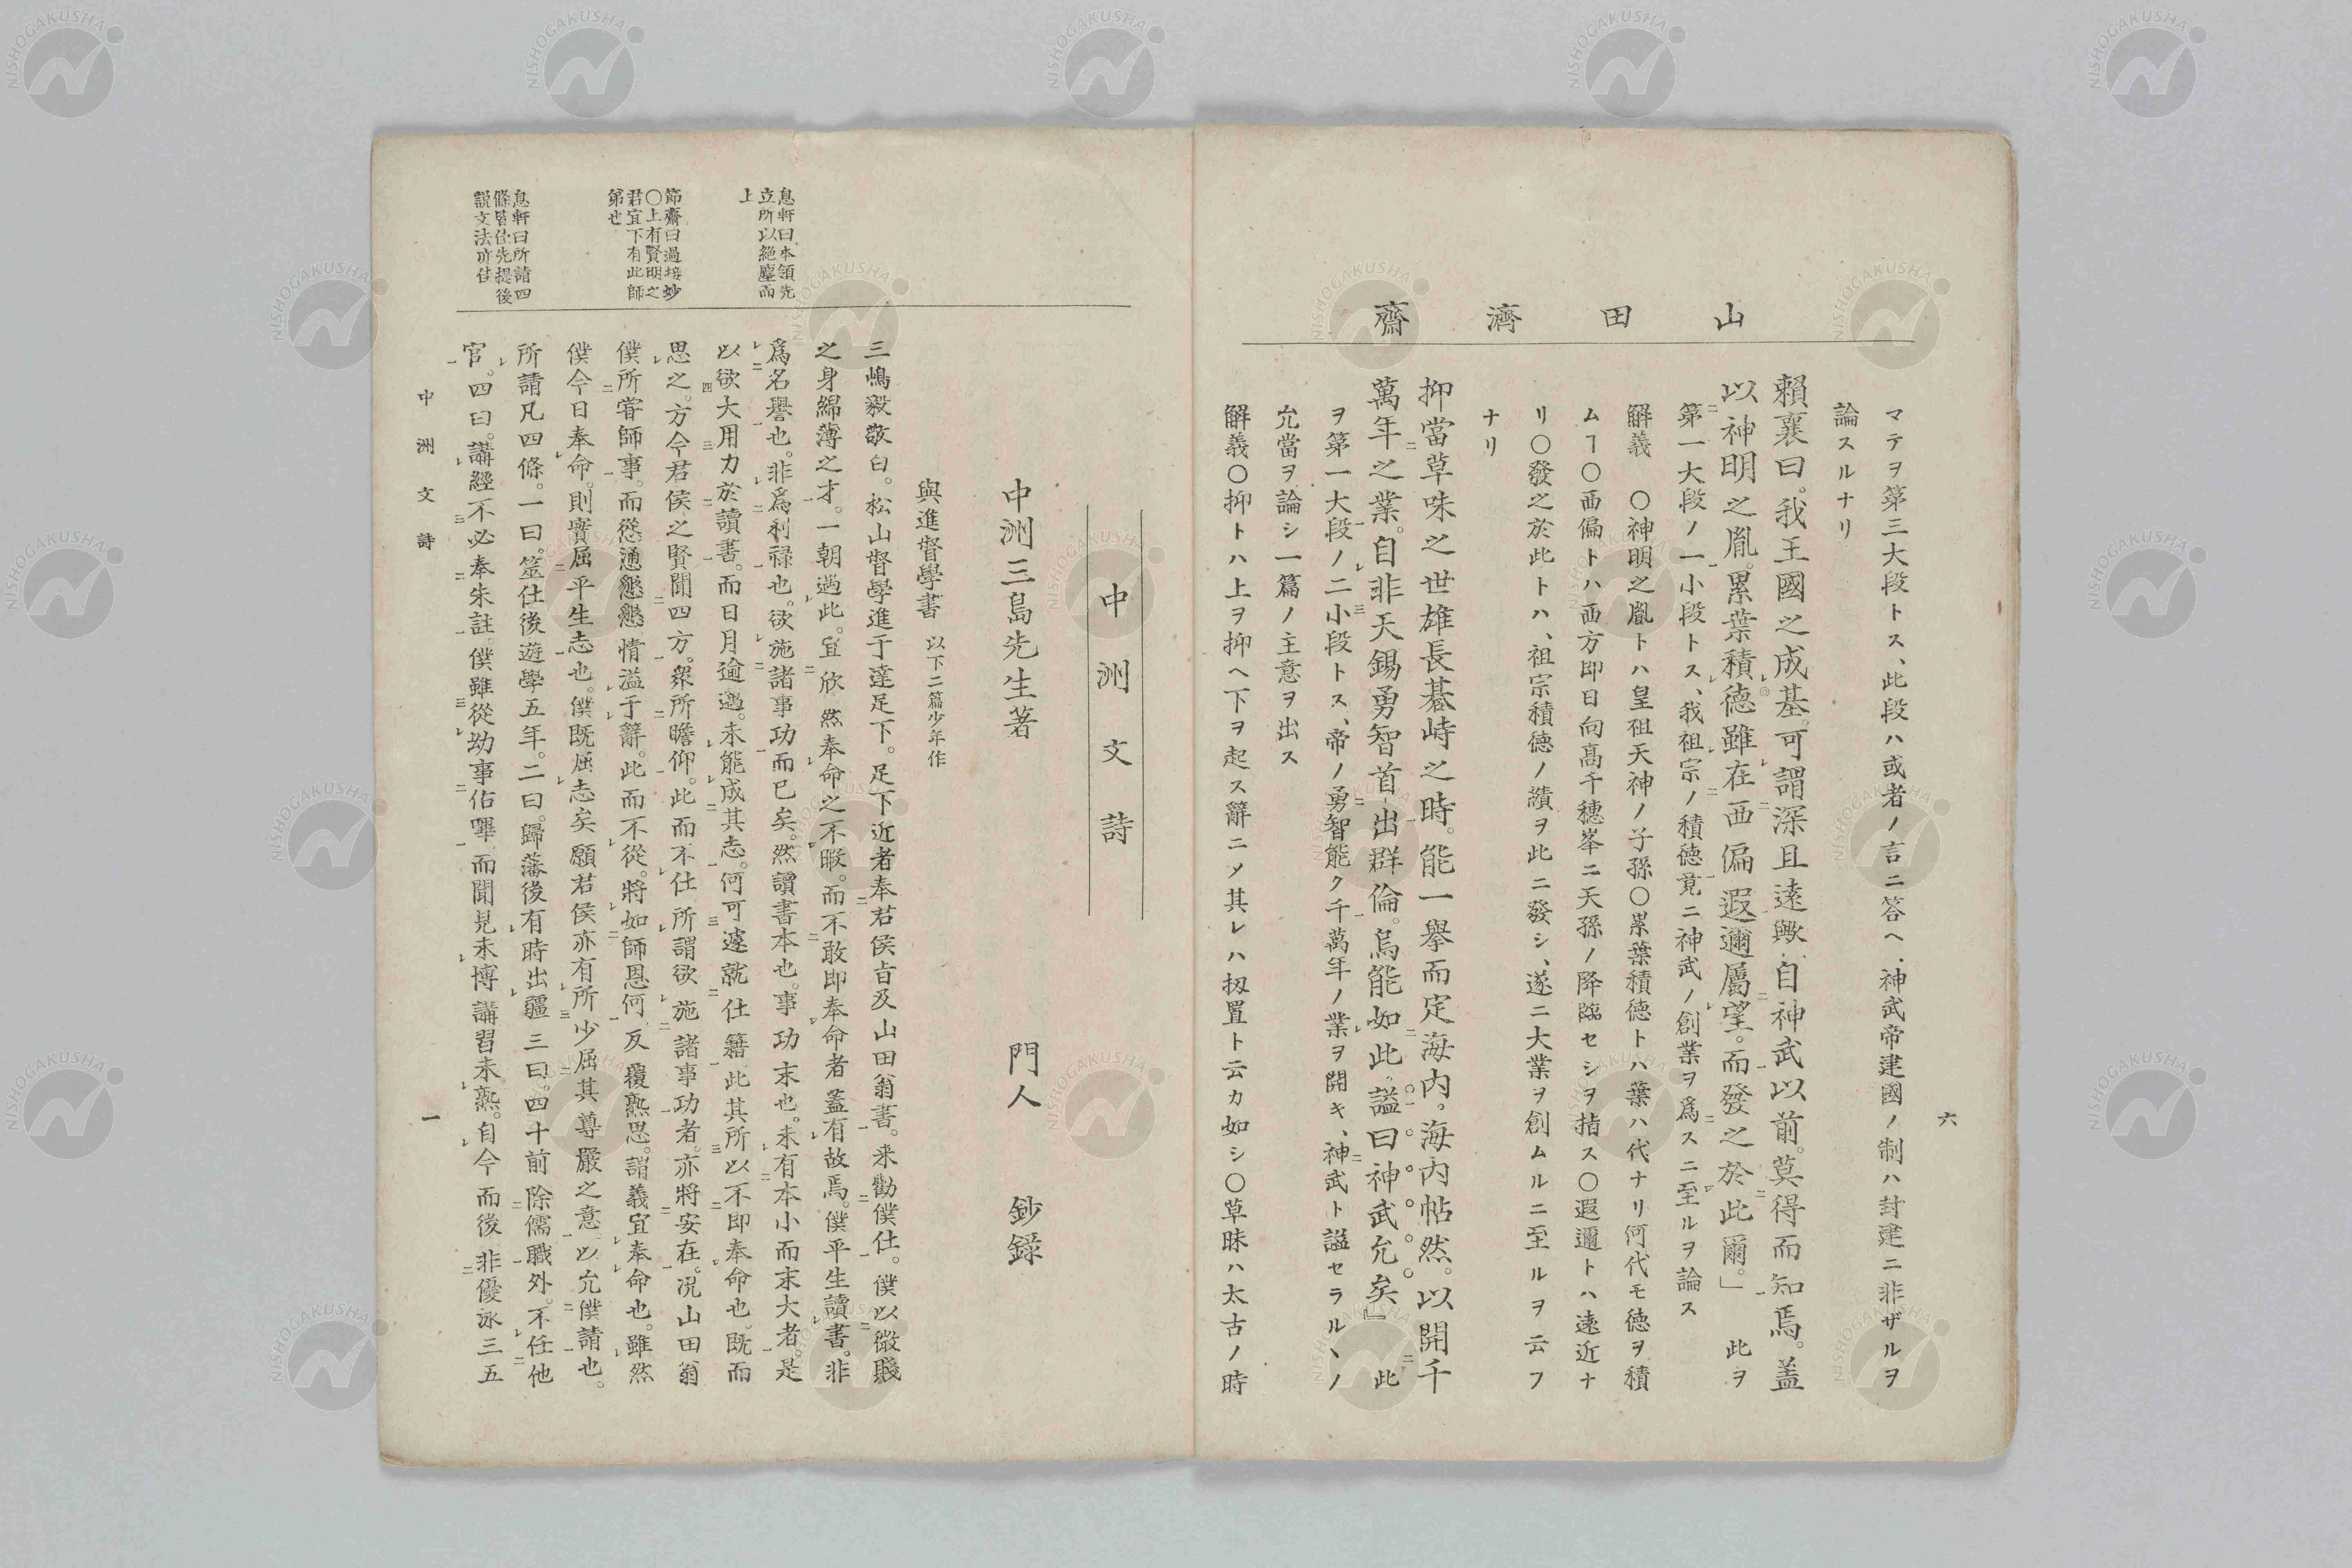 山田濟齋
六
マテヲ第三大段トス、此段ハ或者ノ言ニ答ヘ、神武帝建國ノ制ハ封建ニ非ザルヲ
論スルナリ
賴襄曰。我王國之成基。可謂深且遠歟。自神武以前。莫得而知焉。盖
以神明之胤。累葉積德。雖在西偏。遐邇屬望。而發之於此爾。」 此ヲ
第一大段ノ一小段トス、我祖宗ノ積德竟ニ神武ノ創業ヲ爲スニ至ルヲ論ス
解義 〇神明之胤トハ皇祖天神ノ子孫〇累葉積德トハ葉ハ代ナリ何代モ德ヲ積
ムヿ〇西偏トハ西方即日向高千穗峯ニ天孫ノ降臨セシヲ指ス〇遐邇トハ遠近ナ
リ〇發之於此トハ、祖宗積德ノ績ヲ此ニ發シ、遂ニ大業ヲ創ムルニ至ルヲ云フ
ナリ
抑當草昧之世雄長碁峙之時。能一擧而定海内。海内帖然。以開千
萬年之業。自非天錫勇智首出群倫。烏能如此。謚曰神武。允矣』 此
ヲ第一大段ノ二小段トス、帝ノ勇智能ク千萬年ノ業ヲ開キ、神武ト謚セラルヽノ
允當ヲ論シ一篇ノ主意ヲ出ス
解義〇抑トハ上ヲ抑ヘ下ヲ起ス辭ニメ其レハ扨置ト云カ如シ〇草昧ハ太古ノ時
中洲文詩
中洲三島先生著
門人 鈔錄
與進督學書 以下二篇少年作
三嶋毅敬白。松山督學進于達足下。足下近者奉君侯旨及山田翁書。來勸僕仕。僕以微賤
之身綿薄之才。一朝遇此。宜欣然奉命之不暇。而不敢即奉命者蓋有故焉。僕平生讀書。非
爲名譽也。非爲利祿也。欲施諸事功而已矣。然讀書本也。事功末也。未有本小而末大者。是
以欲大用力於讀書。而日月逾邁。未能成其志。何可遽就仕籍此其所以不即奉命也。既而
思之。方今君侯之賢聞四方。衆所瞻仰。此而不仕所謂欲施諸事功者。亦將安在。况山田翁
僕所甞師事。而從慂懇懇情溢于辭。此而不從。將如師恩何反覆熟思。謂義宜奉命也。雖然
僕今日奉命。則實屈平生志也。僕既屈志矣願君侯亦有所少屈其尊嚴之意以允僕請也。
所請凡四條。一曰。筮仕後遊學五年。二曰。歸藩後有時出疆三曰。四十前除儒職外。不任他
官。四曰。講經不必奉朱註。僕雖從幼事佔畢而聞見未博講習未熟。自今而後非優泳三五
息軒曰本領先
立所以絶塵而
上
節齋曰過接妙
〇上有賢明之
君宜下有此師
第也
息軒曰所請四
條皆佳先提後
説文法亦佳
中洲文詩
一